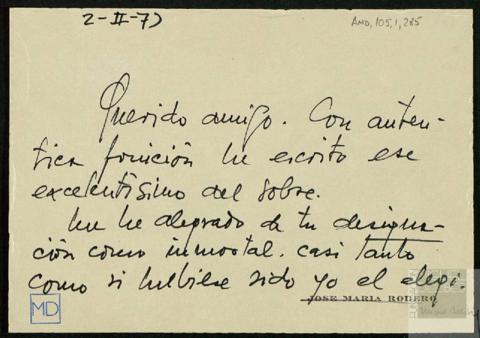 2-II-73
AMD, 105, 1, 285
Querido amigo. Con auten-
tica fruición he escrito ese
excelentísimo del sobre.
Me he alegrado de tu designa-
ción como inmortal. casi tanto
como si hubiese sido yo el elegi.
JOSE MARIA RODERO
MD